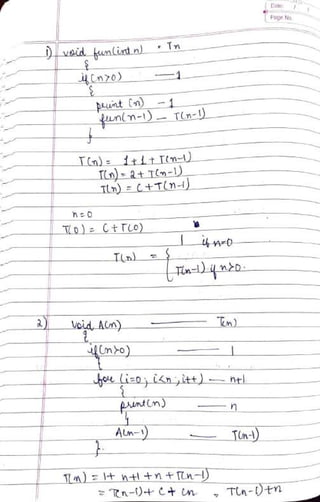 Date: / /
Page No.
1) void fun(int n) · Tn
{
if (n>0) — 1
{
print (n) — 1
fun(n-1) — T(n-1)
}
T(n) = 1+1+T(n-1)
T(n) = 2+T(n-1)
T(n) = C+T(n-1)
n=0
T(0) = C+T(0)
T(n) = { 1 if n=0
T(n-1) if n>0.
2) void A(n) — T(n)
{
if(n>0) — 1
{
for (i=0; i<n; i++) — n+1
{
print(n) — n
}
A(n-1) — T(n-1)
}
T(n) = 1+ n+1 +n + T(n-1)
= T(n-1)+ C+ cn T(n-1)+n